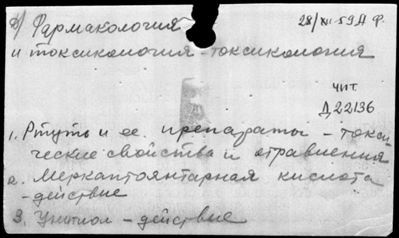 в) Фармакология 28/XII-59 А.Ф.
и токсикология - токсикология
чит.
Д22136
1. Ртуть и ее препараты - токси-
ческие свойства и отравления
2. Меркаптоянтарная кислота
- действие
3. Унитиол - действие